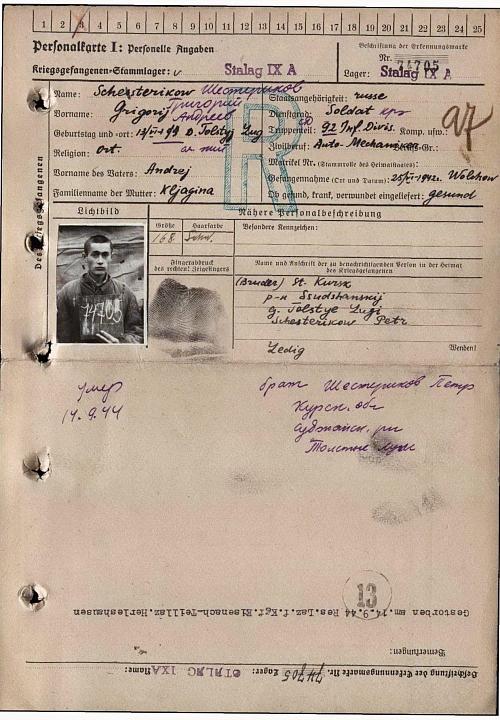 1 2 3 4 5 6 7 8 9 10 11 12 13 14 15 16 17 18 19 20 21 22 23 24 25
Personalkarte I: Personelle Angaben
Kriegsgefangenen-Stammlager: Stalag IX A
Beschriftung der Erkennungsmarke
Nr. 74705
Lager: Stalag IX A
Des Kriegsgefangenen
Name: Schesterikow Шестериков
Vorname: Grigorij Григорий Андреев
Geburtstag und -ort: D. Tolstyj Lug
Religion: ort.
Vorname des Vaters: Andrej
Familienname der Mutter: Kljagina
Staatsangehörigkeit: russe
Dienstgrad: Soldat
Truppenteil: 92 Inf. Divis. Komp. usw.:
Zivilberuf: Auto-Mechaniker
Matrikel Nr. (Stammrolle des Heimatstaates):
Gefangennahme (Ort und Datum): Wolchow
Ob gesund, krank, verwundet eingeliefert: gesund
R
Lichtbild
Nähere Personalbeschreibung
Größe Haarfarbe
168
Besondere Kennzeichen:
Fingerabdruck des rechten! Zeigefingers
Name und Anschrift der zu benachrichtigenden Person in der Heimat des Kriegsgefangenen
74705
(Bruder) St. Kursk
p-n Ssudshanskij
g. Tolstye Lugi
Schesterikow Petr
Ledig
Wenden!
умер
14.9.44
брат Шестериков Петр
Курск. обл
Суджанск. рн
Толстые луги
13
Gestorben am 14.9.44 Res.Laz.f.Kgf.Eisenach-Teillaz.Herleshausen
Bemerkungen:
Beschriftung der Erkennungsmarke Nr. 74705 Lager: STALAG IXA Name: